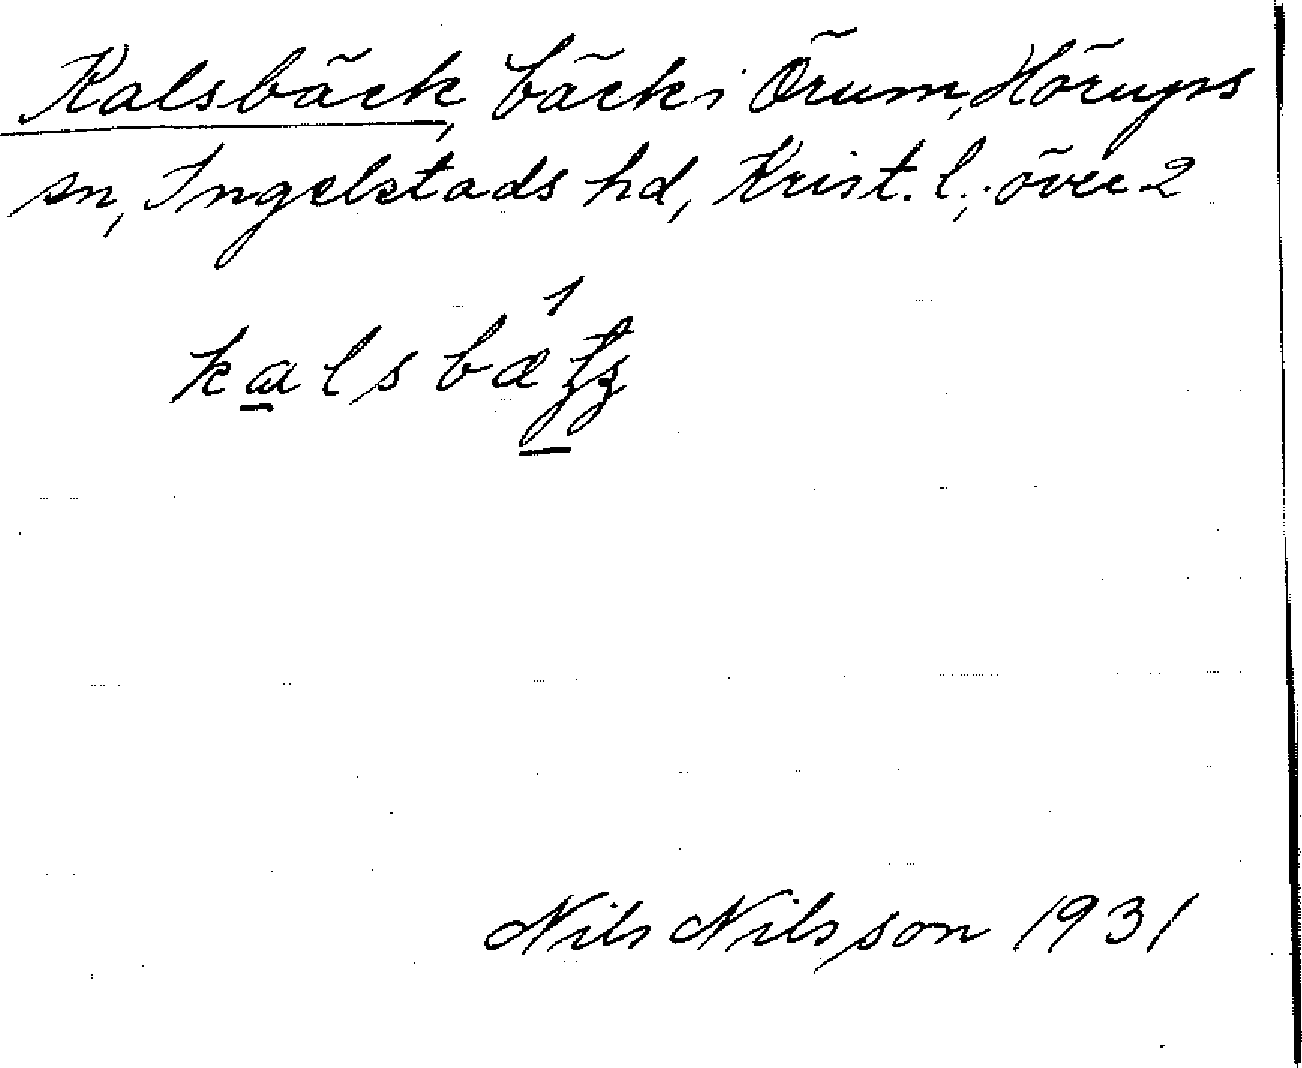 Kalsbäck, bäck i Örum, Hörups
sn, Ingelstads hd, Krist. l.; över 2
Nils Nilsson 1931